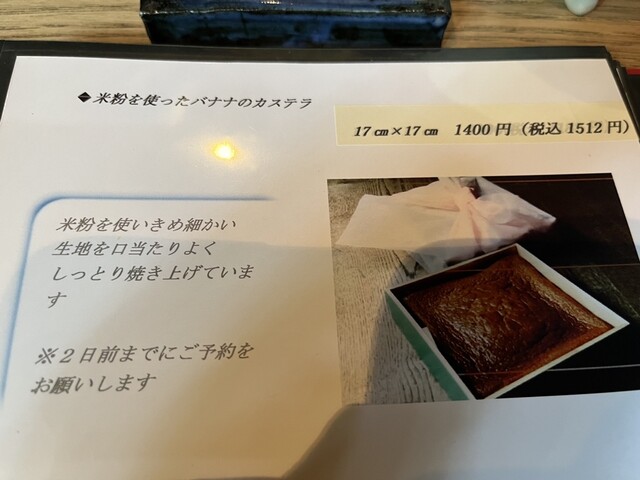 ◆米粉を使ったバナナのカステラ
17㎝×17㎝ 1400円（税込1512円）
米粉を使いきめ細かい
生地を口当たりよく
しっとり焼き上げていま
す
※２日前までにご予約を
お願いします